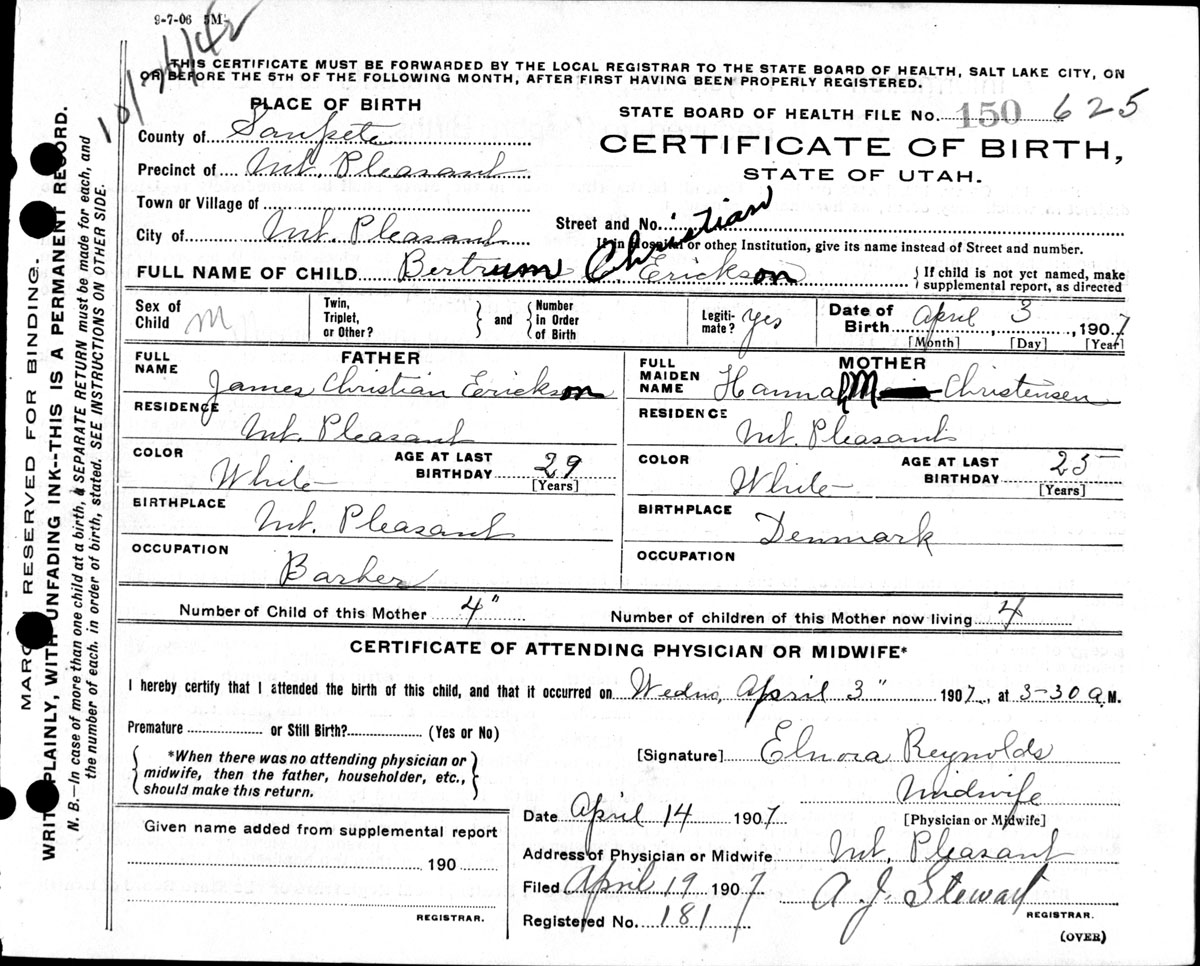 9-7-06 5M
10/26/42
THIS CERTIFICATE MUST BE FORWARDED BY THE LOCAL REGISTRAR TO THE STATE BOARD OF HEALTH, SALT LAKE CITY, ON
OR BEFORE THE 5TH OF THE FOLLOWING MONTH, AFTER FIRST HAVING BEEN PROPERLY REGISTERED.
PLACE OF BIRTH
County of Sanpete
Precinct of Mt. Pleasant
Town or Village of
City of Mt. Pleasant
STATE BOARD OF HEALTH FILE No. 150 625
CERTIFICATE OF BIRTH,
STATE OF UTAH.
Street and No.
If in Hospital or other Institution, give its name instead of Street and number.
FULL NAME OF CHILD Bertrum Christian Erickson
If child is not yet named, make
supplemental report, as directed
Sex of Child M
Twin, Triplet, or Other?
and
Number in Order of Birth
Legiti-mate? Yes
Date of Birth April 3, 1907
[Month] [Day] [Year]
FATHER
FULL NAME James Christian Erickson
RESIDENCE Mt. Pleasant
COLOR White
AGE AT LAST BIRTHDAY 29
[Years]
BIRTHPLACE Mt. Pleasant
OCCUPATION Barber
MOTHER
FULL MAIDEN NAME Hannah M Christensen
RESIDENCE Mt. Pleasant
COLOR White
AGE AT LAST BIRTHDAY 25
[Years]
BIRTHPLACE Denmark
OCCUPATION
Number of Child of this Mother 4"
Number of children of this Mother now living 4
CERTIFICATE OF ATTENDING PHYSICIAN OR MIDWIFE*
I hereby certify that I attended the birth of this child, and that it occurred on Wedns, April 3" 1907, at 3-30 a M.
Premature or Still Birth? (Yes or No)
*When there was no attending physician or
midwife, then the father, householder, etc.,
should make this return.
[Signature] Elnora Reynolds
Midwife
[Physician or Midwife]
Given name added from supplemental report
190
REGISTRAR.
Date April 14 1907
Address of Physician or Midwife Mt. Pleasant
Filed April 19 1907
A. J. Stewart
REGISTRAR.
Registered No. 181
(OVER)
MARGIN RESERVED FOR BINDING.
WRITE PLAINLY, WITH UNFADING INK--THIS IS A PERMANENT RECORD.
N. B.--In case of more than one child at a birth, a SEPARATE RETURN must be made for each, and
the number of each, in order of birth, stated. SEE INSTRUCTIONS ON OTHER SIDE.